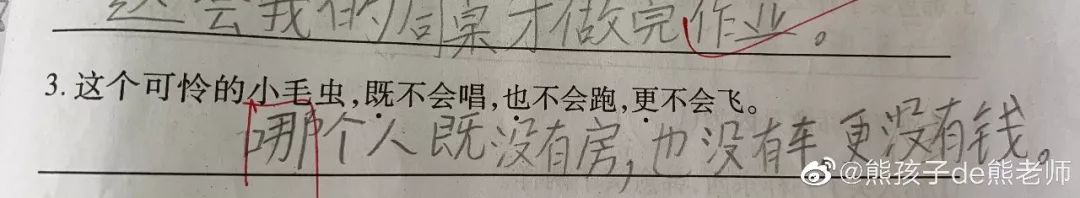 这会我的同桌才做完作业。
3. 这个可怜的小毛虫,既不会唱,也不会跑,更不会飞。
哪个人既没有房,也没有车更没有钱。
@熊孩子de熊老师